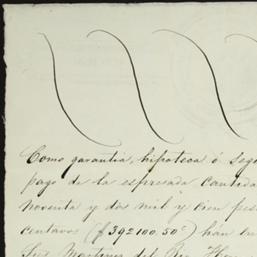 Como garantia, hipoteca ó segu
pago de la espresada cantida
noventa y dos mil y cien pes
centavos ($392100.50ᶜ) hán in
Sres Martinez del Rio Her